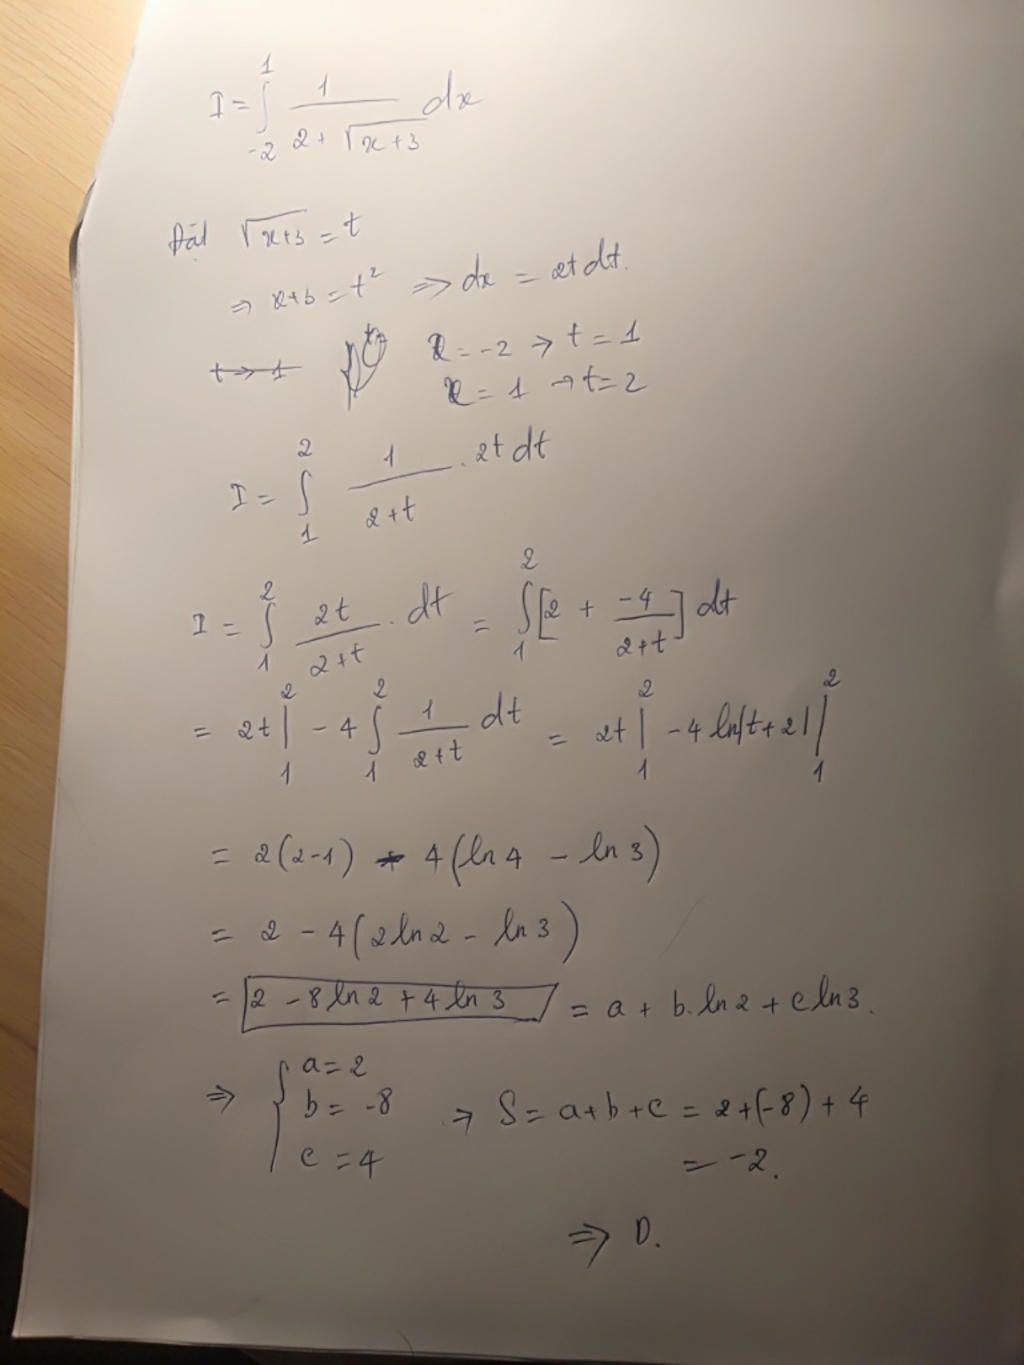 I = ∫_{-2}^{1} \frac{1}{2 + \sqrt{x+3}} dx
Đặt \sqrt{x+3} = t
⇒ x+3 = t² ⇒ dx = 2t dt.
x = -2 → t = 1
x = 1 → t = 2
I = ∫_{1}^{2} \frac{1}{2+t} . 2t dt
I = ∫_{1}^{2} \frac{2t}{2+t} . dt = ∫_{1}^{2} [2 + \frac{-4}{2+t}] dt
= 2t |_{1}^{2} - 4 ∫_{1}^{2} \frac{1}{2+t} dt = 2t |_{1}^{2} - 4 ln|t+2| |_{1}^{2}
= 2(2-1) - 4(ln 4 - ln 3)
= 2 - 4(2 ln 2 - ln 3)
= 2 - 8 ln 2 + 4 ln 3 = a + b. ln 2 + c ln 3.
⇒ { a = 2
b = -8 → S = a+b+c = 2+(-8)+4
c = 4 = -2.
⇒ D.